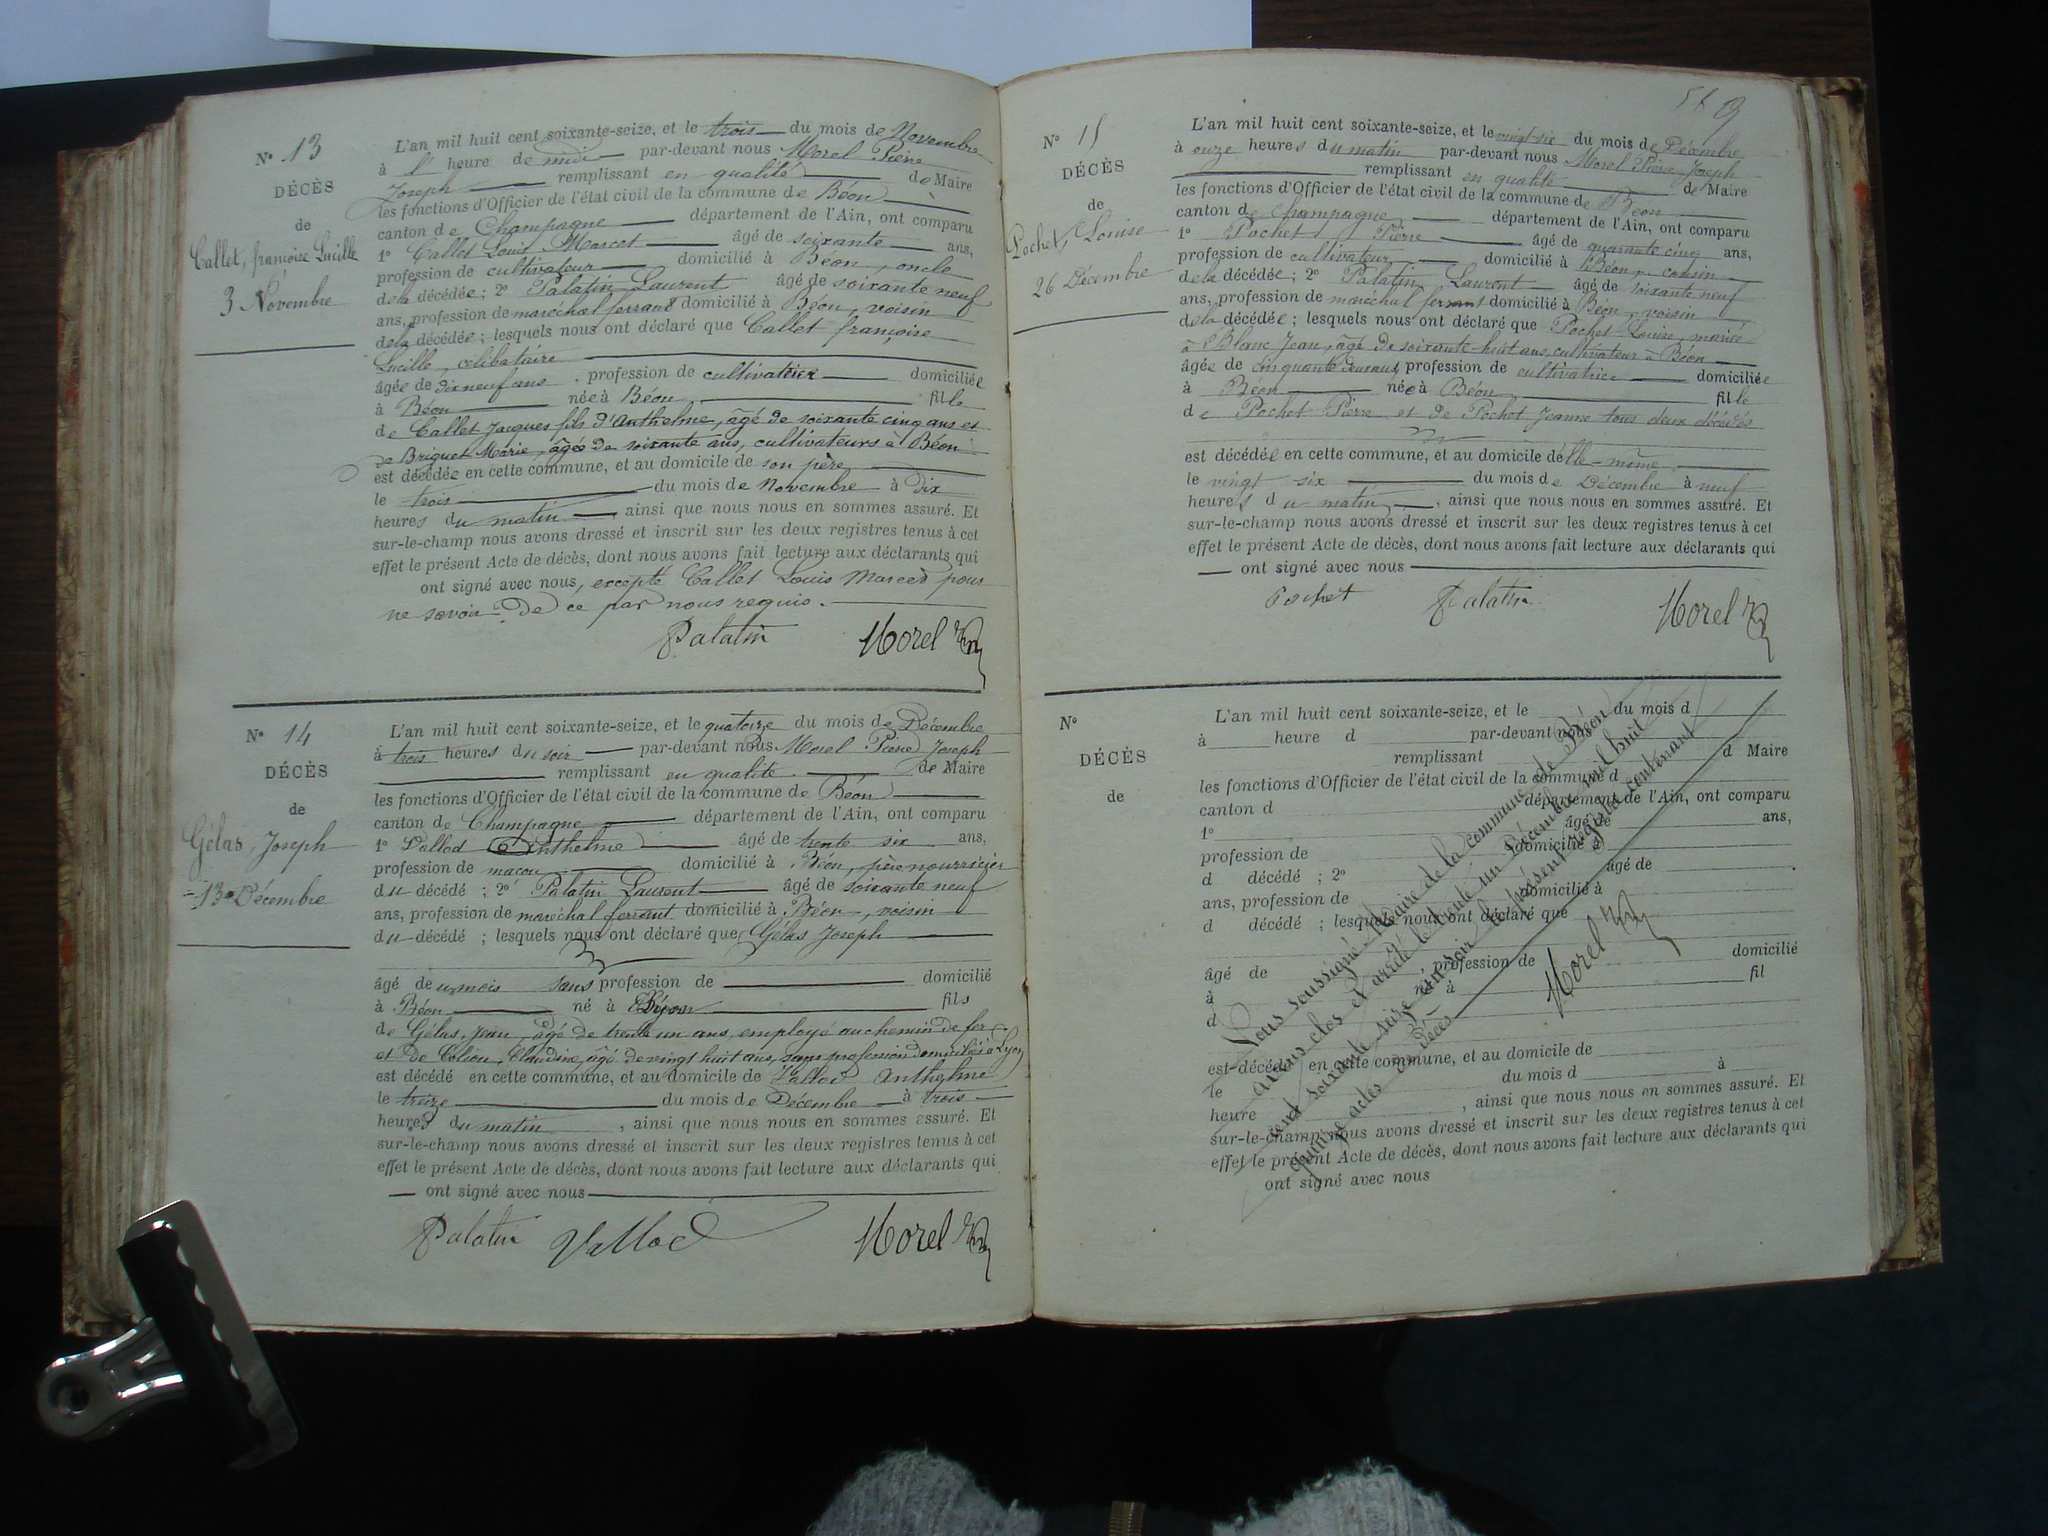 N° 13
DÉCÈS
de
Callet, françoise Lucille
3 Novembre
L'an mil huit cent soixante-seize, et le trois du mois de Novembre
à l' heure de midi par-devant nous Morel Pierre
Joseph remplissant en qualité de Maire
les fonctions d'Officier de l'état civil de la commune de Béon
canton de Champagne département de l'Ain, ont comparu
1° Callet Louis Marcet âgé de soixante ans,
profession de cultivateur domicilié à Béon, oncle
de la décédée; 2° Palatin Laurent âgé de soixante neuf
ans, profession de maréchal ferrant domicilié à Béon, voisin
de la décédée; lesquels nous ont déclaré que Callet françoise
Lucille, célibataire
âgée de dixneuf ans, profession de cultivatrice domiciliée
à Béon née à Béon fille
de Callet Jacques fils d'Anthelme, âgé de soixante cinq ans et
de Briguet Marie, âgée de soixante ans, cultivateurs à Béon
est décédée en cette commune, et au domicile de son père
le trois du mois de Novembre à dix
heures du matin, ainsi que nous nous en sommes assuré. Et
sur-le-champ nous avons dressé et inscrit sur les deux registres tenus à cet
effet le présent Acte de décès, dont nous avons fait lecture aux déclarants qui
ont signé avec nous, excepté Callet Louis Marced pour
ne savoir de ce par nous requis.
Palatin Morel
N° 14
DÉCÈS
de
Gélas, Joseph
13 Décembre
L'an mil huit cent soixante-seize, et le quatorze du mois de Décembre
à trois heures du soir par-devant nous Morel Pierre Joseph
remplissant en qualité de Maire
les fonctions d'Officier de l'état civil de la commune de Béon
canton de Champagne département de l'Ain, ont comparu
1° Vallod Anthelme âgé de trente six ans,
profession de maçon domicilié à Béon, père nourricier
du décédé; 2° Palatin Laurent âgé de soixante neuf
ans, profession de maréchal ferrant domicilié à Béon, voisin
du décédé; lesquels nous ont déclaré que Gélas Joseph
âgé de un mois sans profession de domicilié
à Béon né à Lyon fils
de Gélas, Jean, âgé de trente un ans, employé au chemin de fer
et de Claudine, âgé de vingt huit ans, sans profession domiciliés à Lyon
est décédé en cette commune, et au domicile de Vallod Anthelme
le treize du mois de Décembre à trois
heures du matin, ainsi que nous nous en sommes assuré. Et
sur-le-champ nous avons dressé et inscrit sur les deux registres tenus à cet
effet le présent Acte de décès, dont nous avons fait lecture aux déclarants qui
ont signé avec nous
Palatin Vallod Morel
N° 15
DÉCÈS
de
Pochet, Louise
26 Décembre
L'an mil huit cent soixante-seize, et le vingt-six du mois de Décembre
à onze heures du matin par-devant nous Morel Pierre Joseph
remplissant en qualité de Maire
les fonctions d'Officier de l'état civil de la commune de Béon
canton de Champagne département de l'Ain, ont comparu
1° Pochet Pierre âgé de quarante cinq ans,
profession de cultivateur domicilié à Béon, cousin
de la décédée; 2° Palatin Laurent âgé de soixante neuf
ans, profession de maréchal ferrant domicilié à Béon, voisin
de la décédée; lesquels nous ont déclaré que Pochet Louise, mariée
à Blanc Jean, âgé de soixante-huit ans, cultivateur à Béon
âgée de cinquante deux ans, profession de cultivatrice domiciliée
à Béon née à Béon fille
de Pochet Pierre et de Pochet Jeanne tous deux décédés
est décédée en cette commune, et au domicile d'elle-même
le vingt six du mois de Décembre à neuf
heures du matin, ainsi que nous nous en sommes assuré. Et
sur-le-champ nous avons dressé et inscrit sur les deux registres tenus à cet
effet le présent Acte de décès, dont nous avons fait lecture aux déclarants qui
ont signé avec nous
Pochet Palatin Morel
N°
DÉCÈS
de
L'an mil huit cent soixante-seize, et le du mois d
à heure d par-devant nous
remplissant d Maire
les fonctions d'Officier de l'état civil de la commune d
canton d département de l'Ain, ont comparu
1° âgé de ans,
profession de domicilié à
d décédé ; 2° âgé de
ans, profession de domicilié à
d décédé ; lesquels nous ont déclaré que
âgé de profession de domicilié
à né à fil
d
est décédé en cette commune, et au domicile de
le du mois d à
heure , ainsi que nous nous en sommes assuré. Et
sur-le-champ nous avons dressé et inscrit sur les deux registres tenus à cet
effet le présent Acte de décès, dont nous avons fait lecture aux déclarants qui
ont signé avec nous
Nous soussigné Maire de la commune de Béon
avons clos et arrêté le trente un Décembre mil huit
cent soixante seize au soir le présent registre contenant
quinze actes de décès
Morel